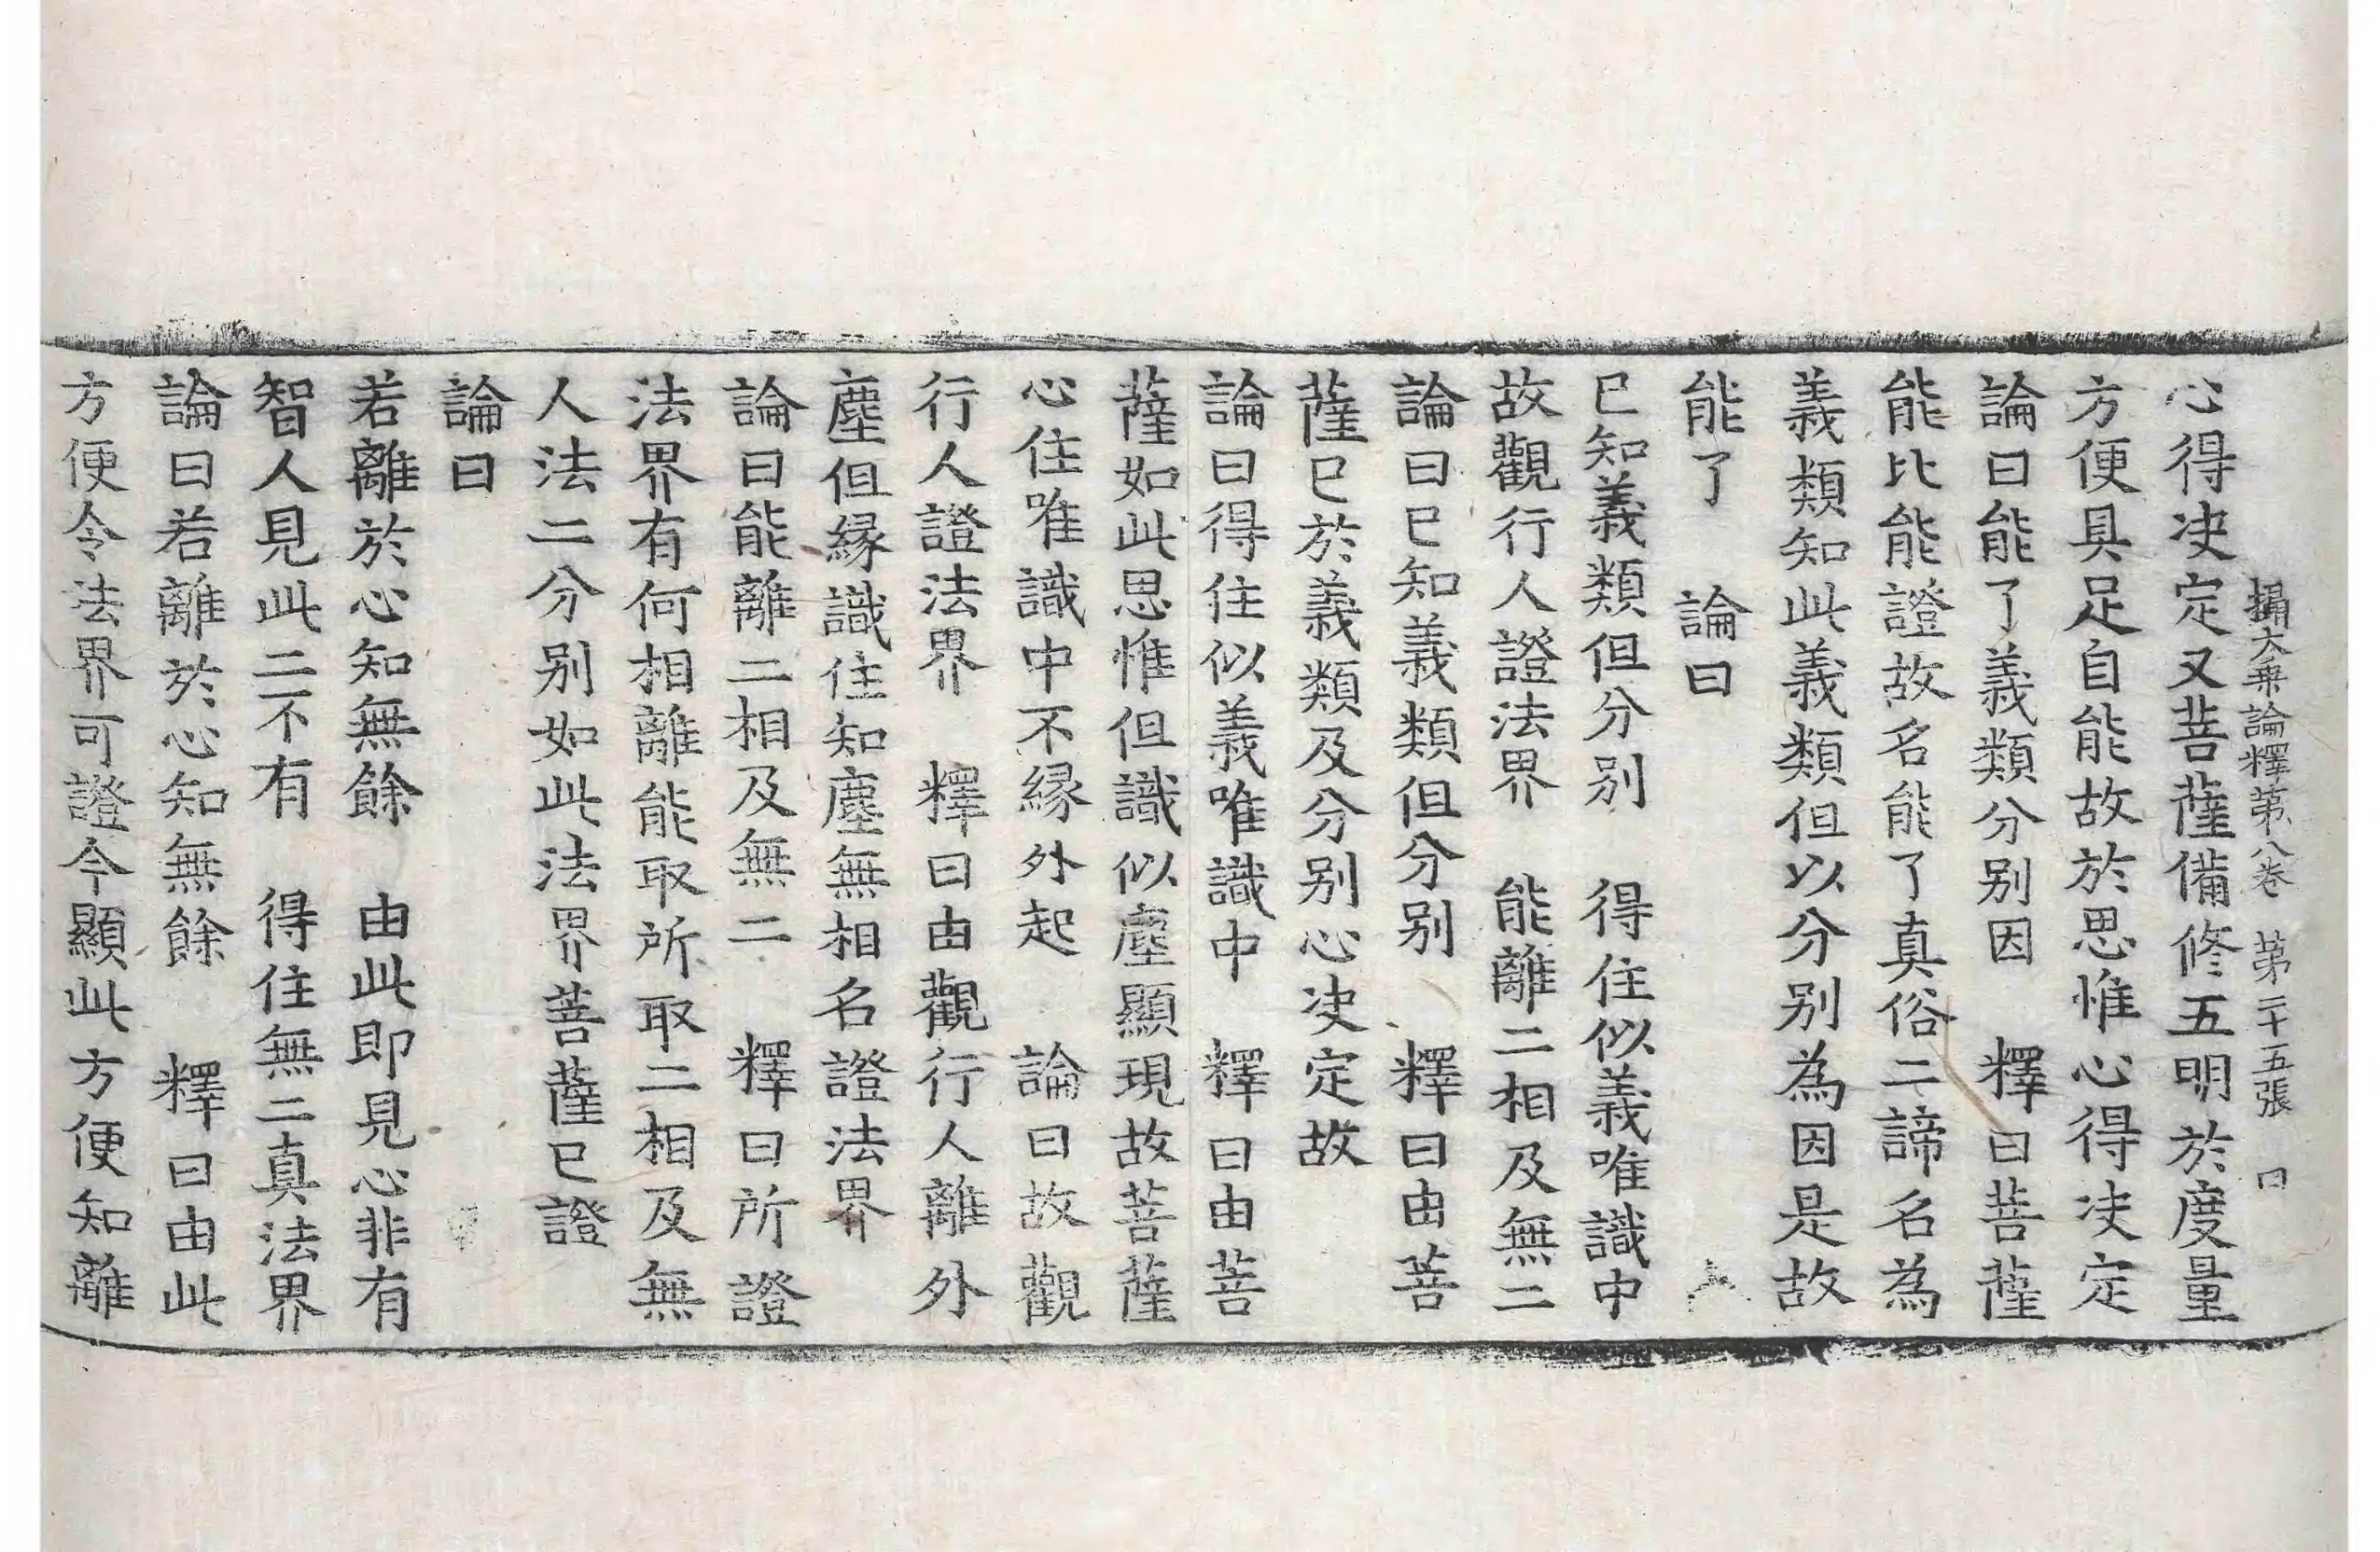 攝大乗論釋第八卷 第二十五張 曰
心得决定又菩薩備修五明於度量
方便具足自能故於思惟心得决定
論曰能了義類分别因 釋曰菩薩
能比能證故名能了真俗二諦名為
義類知此義類但以分别為因是故
能了 論曰
已知義類但分别 得住似義唯識中
故觀行人證法界 能離二相及無二
論曰已知義類但分别 釋曰由菩
薩已於義類及分别心决定故
論曰得住似義唯識中 釋曰由菩
薩如此思惟但識似塵顯現故菩薩
心住唯識中不縁外起 論曰故觀
行人證法界 釋曰由觀行人離外
塵但縁識住知塵無相名證法界
論曰能離二相及無二 釋曰所證
法界有何相離能取所取二相及無
人法二分别如此法界菩薩已證
論曰
若離於心知無餘 由此即見心非有
智人見此二不有 得住無二真法界
論曰若離於心知無餘 釋曰由此
方便令法界可證今顯此方便知離